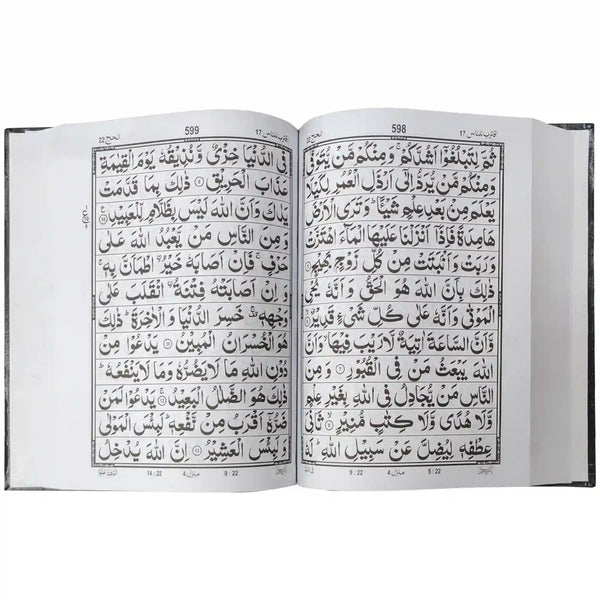 اقترب للناس 17
598
الحج 22
ثُمَّ لِتَبْلُغُوْۤا اَشُدَّكُمْ ۚ وَمِنْكُمْ مَّنْ يُّتَوَفّٰى
وَمِنْكُمْ مَّنْ يُّرَدُّ اِلٰۤى اَرْذَلِ الْعُمُرِ لِكَيْلَا
يَعْلَمَ مِنْۢ بَعْدِ عِلْمٍ شَيْـًٔا ؕ وَتَرَى الْاَرْضَ
هَامِدَةً فَاِذَاۤ اَنْزَلْنَا عَلَيْهَا الْمَآءَ اهْتَزَّتْ
وَرَبَتْ وَاَنْۢبَتَتْ مِنْ كُلِّ زَوْجٍۭ بَهِيْجٍ
ذٰلِكَ بِاَنَّ اللّٰهَ هُوَ الْحَقُّ وَاَنَّهٗ يُحْيِ
الْمَوْتٰى وَاَنَّهٗ عَلٰى كُلِّ شَيْءٍ قَدِيْرٌ
وَّاَنَّ السَّاعَةَ اٰتِيَةٌ لَّا رَيْبَ فِيْهَا ۙ وَاَنَّ
اللّٰهَ يَبْعَثُ مَنْ فِى الْقُبُوْرِ ۷ وَمِنَ
النَّاسِ مَنْ يُّجَادِلُ فِى اللّٰهِ بِغَيْرِ عِلْمٍ
وَّلَا هُدًى وَّلَا كِتٰبٍ مُّنِيْرٍ ۸ ثَانِيَ
عِطْفِهٖ لِيُضِلَّ عَنْ سَبِيْلِ اللّٰهِ ؕ لَهٗ
5 : 22
منزل 4
9 : 22
17 اقترب للناس
599
الحج 22
فِى الدُّنْيَا خِزْىٌ وَّنُذِيْقُهٗ يَوْمَ الْقِيٰمَةِ
عَذَابَ الْحَرِيْقِ ۹ ذٰلِكَ بِمَا قَدَّمَتْ
يَدٰكَ وَاَنَّ اللّٰهَ لَيْسَ بِظَلَّامٍ لِّلْعَبِيْدِ ۱۰
وَمِنَ النَّاسِ مَنْ يَّعْبُدُ اللّٰهَ عَلٰى
حَرْفٍ ۚ فَاِنْ اَصَابَهٗ خَيْرُ ِۨاطْمَاَنَّ بِهٖ ۚ
وَاِنْ اَصَابَتْهُ فِتْنَةُ ِۨانْقَلَبَ عَلٰى
وَجْهِهٖ ۚ خَسِرَ الدُّنْيَا وَالْاٰخِرَةَ ؕ ذٰلِكَ
هُوَ الْخُسْرَانُ الْمُبِيْنُ ۱۱ يَدْعُوْا مِنْ
دُوْنِ اللّٰهِ مَا لَا يَضُرُّهٗ وَمَا لَا يَنْفَعُهٗ ؕ
ذٰلِكَ هُوَ الضَّلٰلُ الْبَعِيْدُ ۱۲ يَدْعُوْا لَمَنْ
ضَرُّهٗۤ اَقْرَبُ مِنْ نَّفْعِهٖ ؕ لَبِئْسَ الْمَوْلٰى
وَلَبِئْسَ الْعَشِيْرُ ۱۳ اِنَّ اللّٰهَ يُدْخِلُ
9 : 22
منزل 4
14 : 22